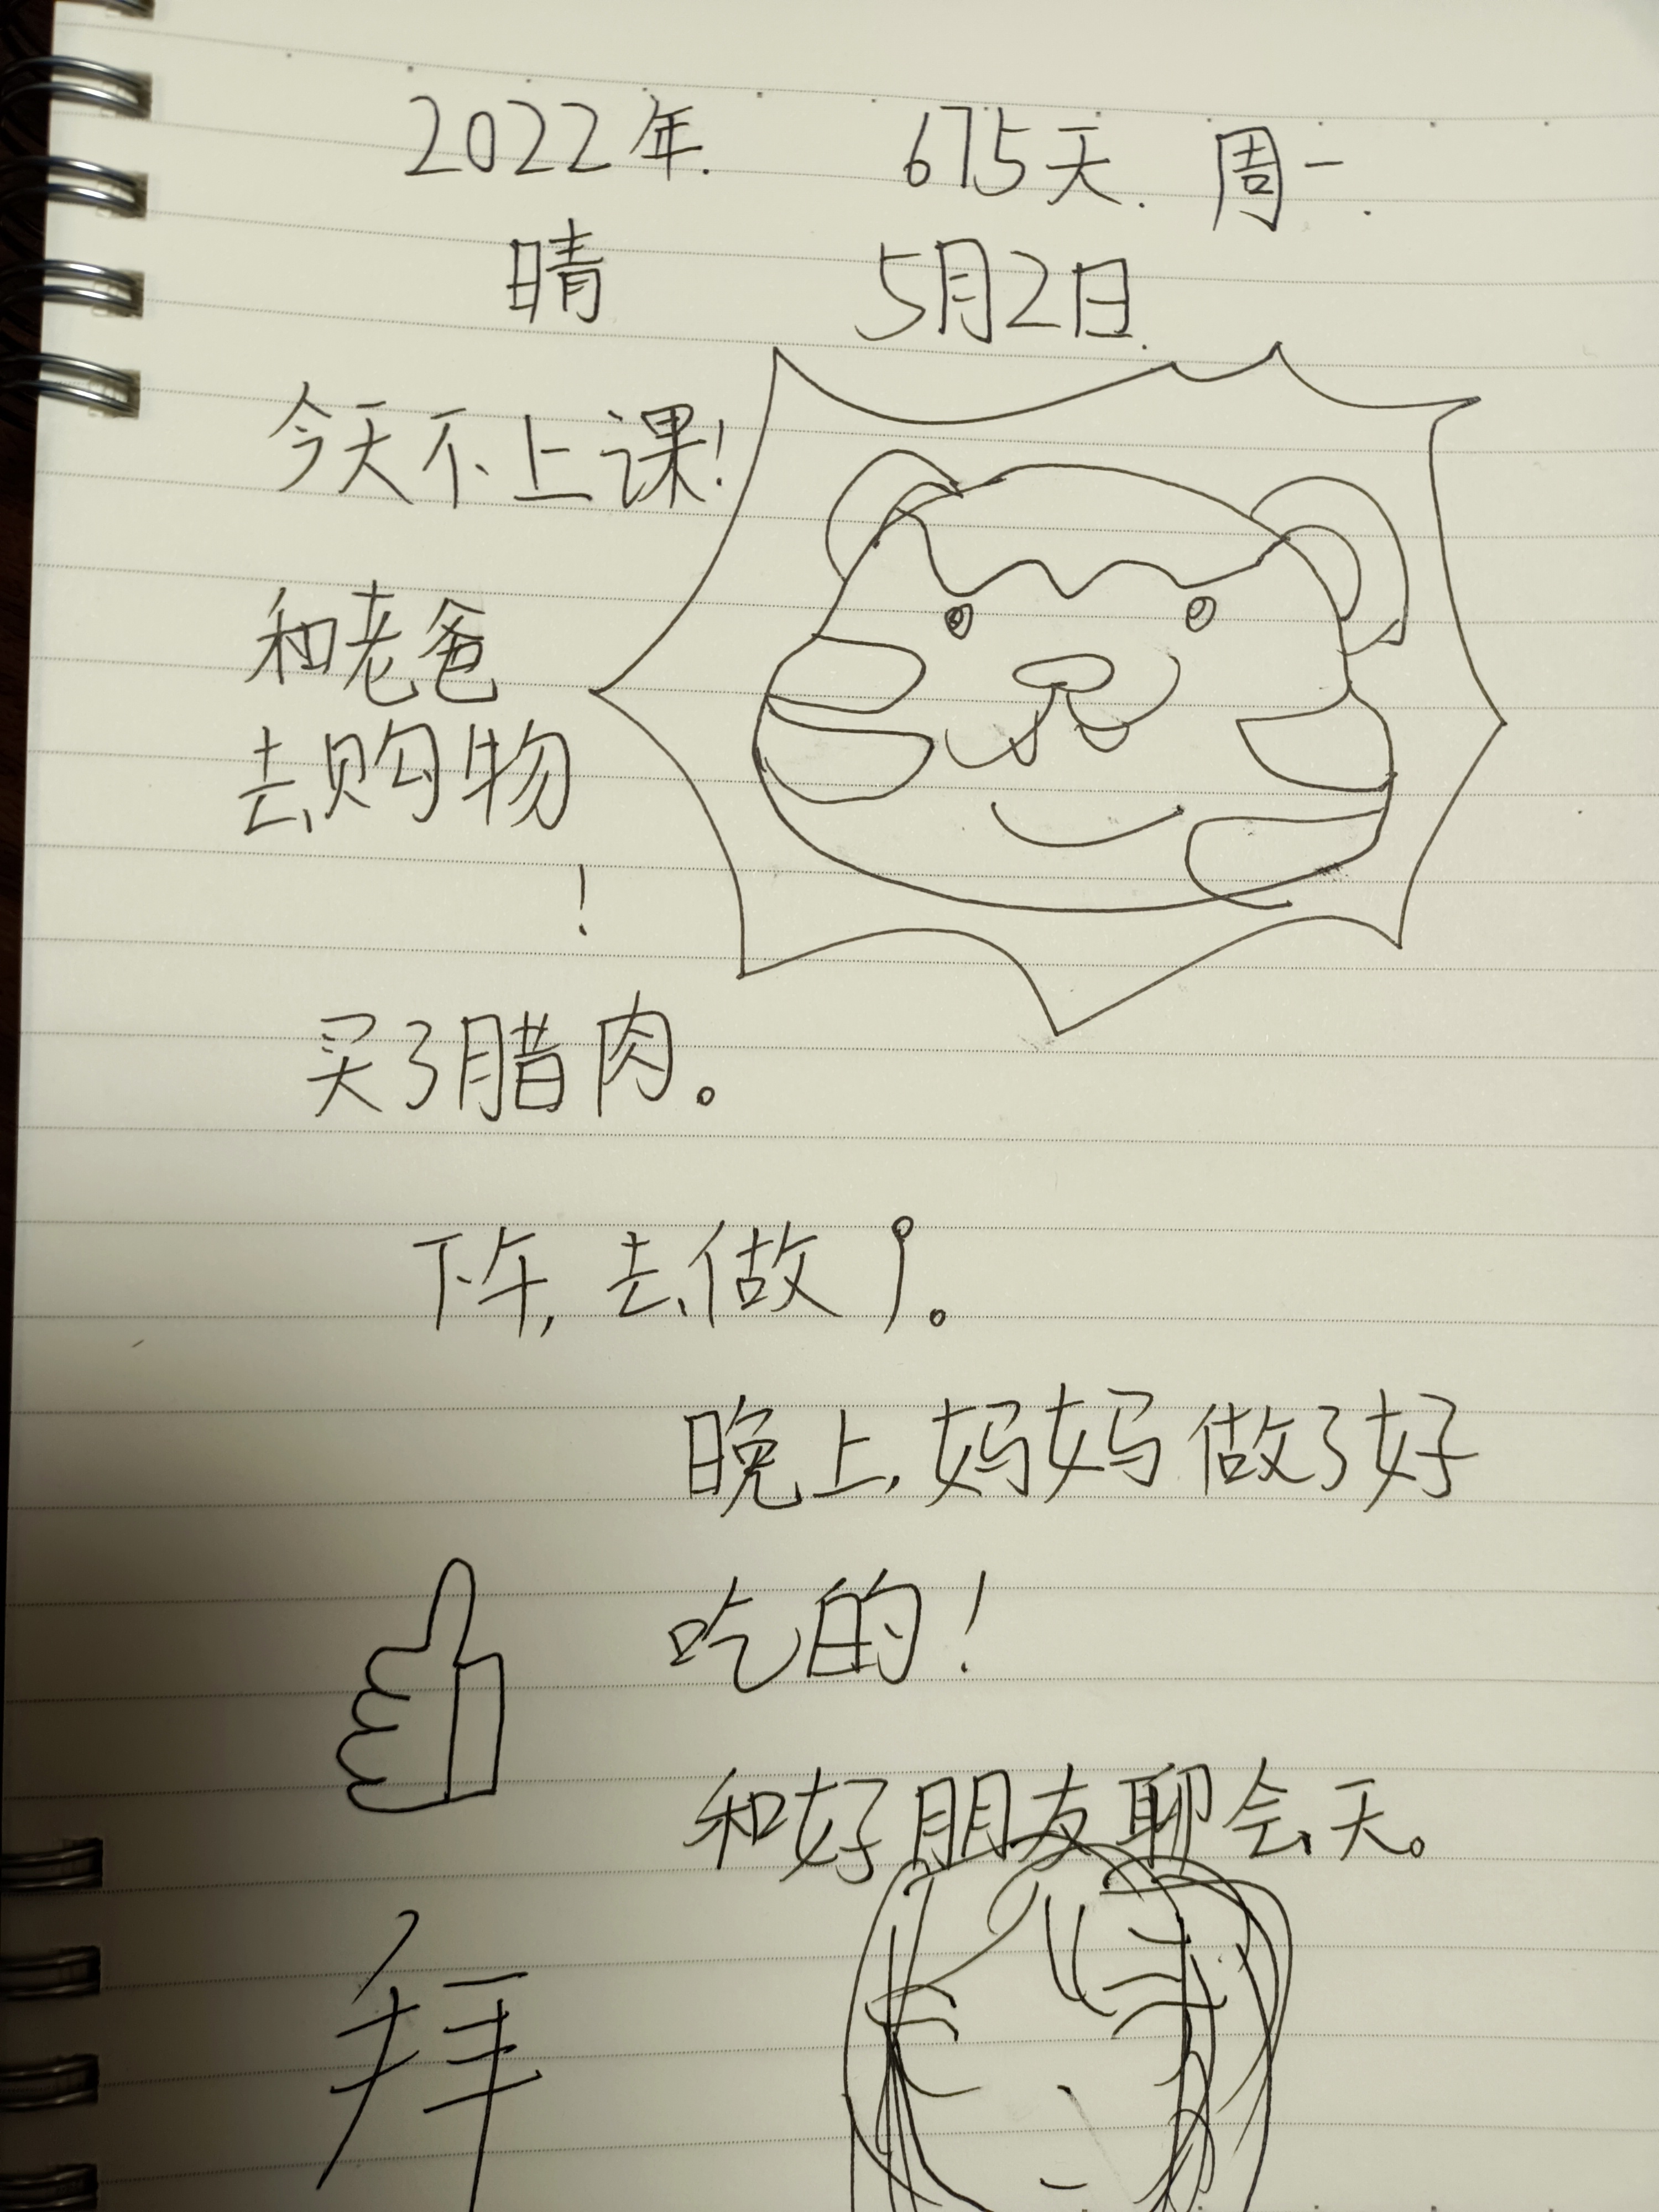 2022年. 675天. 周一.
晴 5月2日.
今天不上课!
和老爸
去购物
!
买了腊肉。
下午,去做 。
晚上,妈妈做了好
吃的!
和好朋友聊会天。
拜